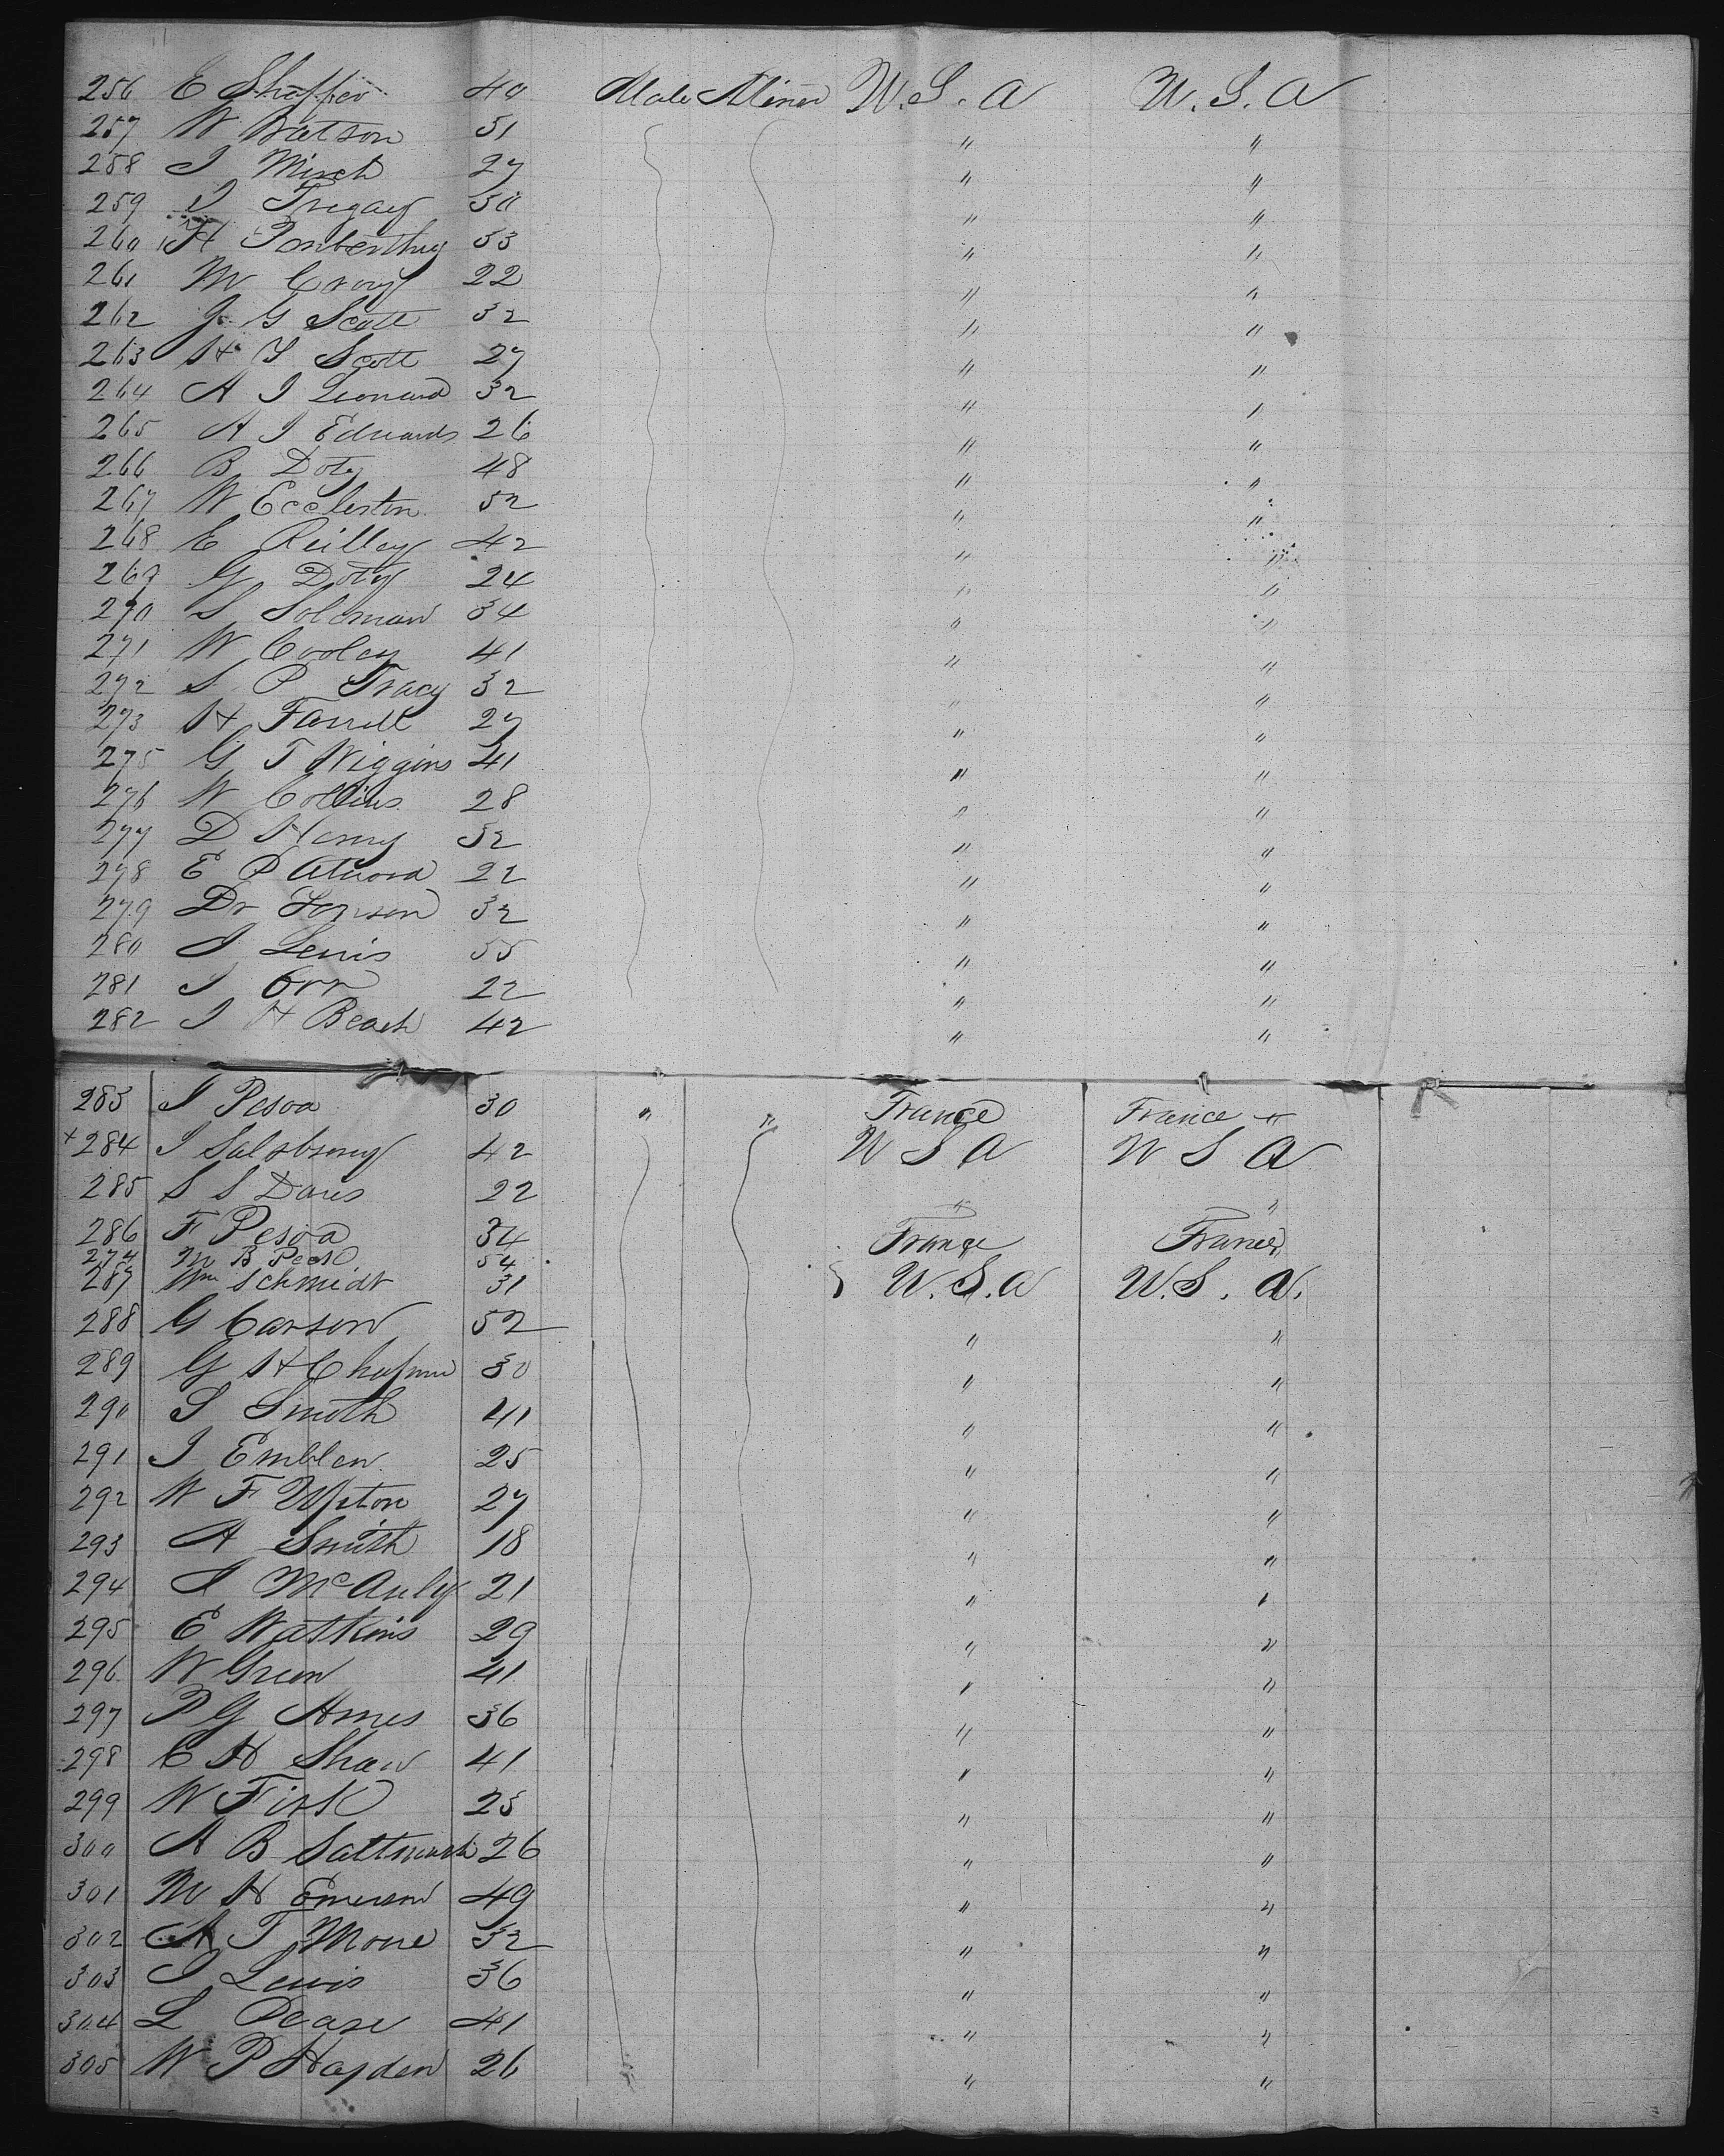 256 E Shaffer 40 Male Miner U.S.A U.S.A
257 W Watson 51 " "
258 J Minch 27 " "
259 J Tregay 30 " "
260 H Penberthy 33 " "
261 M Crary 22 " "
262 J. G Scott 32 " "
263 H T Scott 27 " "
264 A J Leonard 32 " "
265 A J Edwards 26 " "
266 B Doty 48 " "
267 W Eccleston 52 " "
268 E Reilley 42 " "
269 G Doty 24 " "
270 S Soloman 34 " "
271 W Cooley 41 " "
272 S P Tracy 32 " "
273 H Farrell 27 " "
275 G T Wiggins 41 " "
276 W Collins 28 " "
277 D Henry 52 " "
278 E P Atwood 22 " "
279 Dr Fonson 32 " "
280 J Lewis 55 " "
281 J Orr 22 " "
282 J H Beach 42 " "
283 J Pesoa 30 " " France France "
+ 284 J Salsbury 42 U S A U S A
285 S S Davis 22 " "
286 F Pesoa 34 France France
274 M B Peck 54
287 Wm Schmidt 31 U.S.A U.S.A.
288 G Carson 52 " "
289 G H Chapman 30 " "
290 S Smith 41 " "
291 J Emblen 25 " "
292 W F Upton 27 " "
293 A Smith 18 " "
294 J McAuly 21 " "
295 E Watkins 29 " "
296 W Green 41 " "
297 P G Ames 36 " "
298 C H Shaw 41 " "
299 W Fisk 25 " "
300 A B Saltmarsh 26 " "
301 M H Emerson 49 " "
302 A T Morse 32 " "
303 J Lewis 36 " "
304 L Dease 41 " "
305 W P Hayden 26 " "